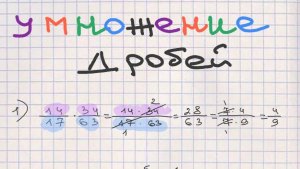 умножение
дробей
1) 14/17 · 34/63 = 14 · 34 2/17 · 63 1 = 28/63 = 7 1 · 4/7 1 · 9 = 4/9